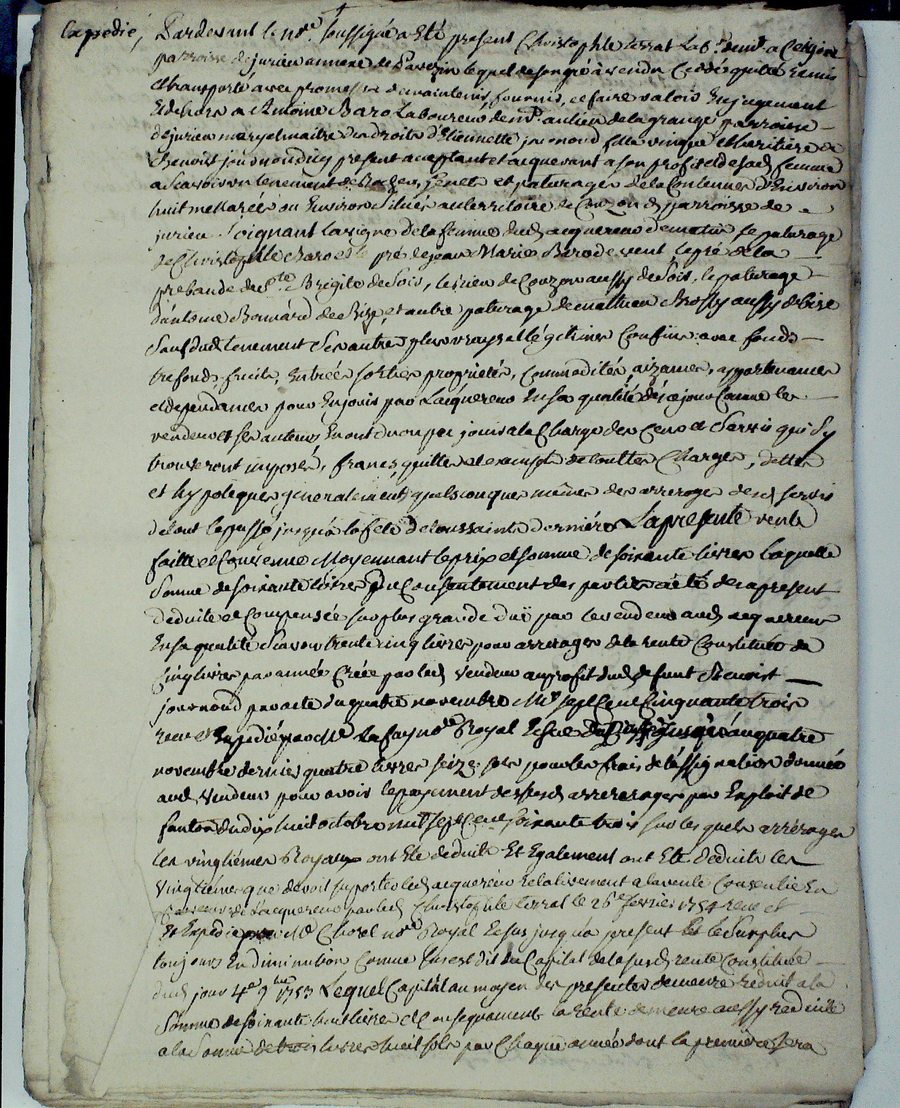 Expedié, Pardevant le no.re soussigné a Eté present Christophle terrat Lab.r demt. a
parroisse de jurieu annexe de Laverin lequel de son gré a vendu Cedé quitté Remis
et transporté avec promesse de maintenir, fournir, et faire valoir En jugement
Et dehors a Antoine Baro Laboureur dem.t au lieu de la grange parroisse
de jurieu mary et maitre des droits d'Etiennette journoud fille unique et heritiere de
Benoist journoud icy present acceptant et acquerant a son profit et de sad. femme
a Scavoir un tenement de Rocher, Genets et paturages de la Contenue d'Environ
huit metterées ou Environ Situés au territoire de Couzon d. parroisse de
jurieu joignant la vigne de la femme dud. acquereur de matin le paturage
de Christophle Baro et le pré de jean Marie Baro de vent, le pré de la
prebande de Ste. Brigite de Soir, le rieu de Couzon aussy de Soir, le paturage
d'antoine Bernard de Bize, et autre paturage de mathieu Brossy aussy de bize
Sauf dud. tenement Ses autres plus vrays et legitimes Confins avec fonds
trefonds, fruits, Entrées sorties proprietés, Commodités, aizances, appartenances
et dependances pour En jouir par L'acquereur En sa qualité dès ce jour Comme le
vendeur et ses auteurs En ont du ou pu jouir a la Charge des Cens et Servis qui S'y
trouveront imposés, francs, quitte et exempts de toutes Charges, dettes
et hypoteques generalement quelconques même des arrerages desd. servis
de tout le passé jusqu'a la fete de toussaints derniere La presente vente
faitte et Convenue Moyennant le prix et somme de soixante livres laquelle
Somme de soixante livres du Consentement des parties a été des a present
deduite et Compensée sur plus grande duë par le vendeur aud. acquereur
En sa qualité Scavoir trente cinq livres pour arrerages de la rente Constituée de
Cinq livres par année Créée par led. vendeur au profit dud. defunt Benoist
journoud par acte du quatre novembre Mil sept Cent Cinquante trois
recu et Expedié par Me. Lafay no.re Royal jusqu'au quatre
novembre dernier quatre livres seize sols pour les frais de l'assignation donnée
aud. vendeur pour avoir le payement desd. arrerages par Exploit de
fanton du dix huit octobre mil sept Cent soixante trois sur lesquels arrérages
les vingtiemes Royaux ont Eté deduits Et Egalement ont Eté deduits les
vingtiemes que devoit suporter led. acquereur relativement a la vente Consentie En
faveur de l'acquereur par led. Christophle terrat le 26 fevrier 1754 recu et
Et Expedié par Me. Chorel no.re Royal jusqu'a present Et le Surplus
toujours En diminution Comme Sus est dit du Capital de la susd. rente Constituée
dud. jour 4e 9bre 1753 Lequel Capital au moyen des presentes demeure reduit a la
Somme de soixante huit livres et Consequament la rente demeure aussy reduite
a la Somme de trois livres huit sols par Chaque année dont la premiere Sera